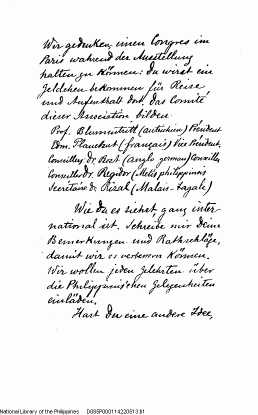 Wir gedenken einen Congres im
Paris während der Ausstellung
halten zu können: du wirst ein
Geldchen bekommen für Reise
und Aufenthalt dort. Das Comité
dieser Association bilden
Prof. Blumentritt (autrichien) Président
Edm. Plauchut (français) Vice Président
Conseiller Dr. Rost (anglo german) Conseiller
Conseiller Dr. Regidor (Metis philippinois
Secrétaire Dr. Rizal (Malais-tagale)
Wie du es siehst, ganz inter-
national ist. Schreibe mir Deine
Bemerkungen und Rathschläge,
damit wir es verbessern können.
Wir wollen jeden Gelehrten über
die Philippinischen Gelegenheiten
einladen.
Hast Du eine andere Idee,
National Library of the Philippines